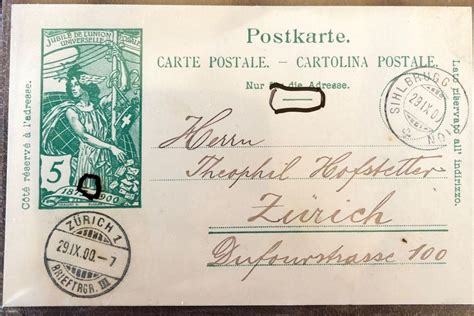 JUBILÉ DE L'UNION
UNIVERSELLE
5
1900
Côté réservé à l'adresse.
Postkarte.
CARTE POSTALE. – CARTOLINA POSTALE.
Nur für die Adresse.
SIHLBRUGG
29 IX 00
Lato riservato all' indirizzo.
Herrn
Theophil Hofstetter
Zürich
Dufourstrasse 100
ZÜRICH 1
29.IX.00.–7
BRIEFTRGR. III